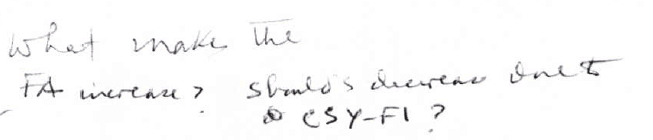 What makes the
FA increase? should's decrease due to
CSY-FI?